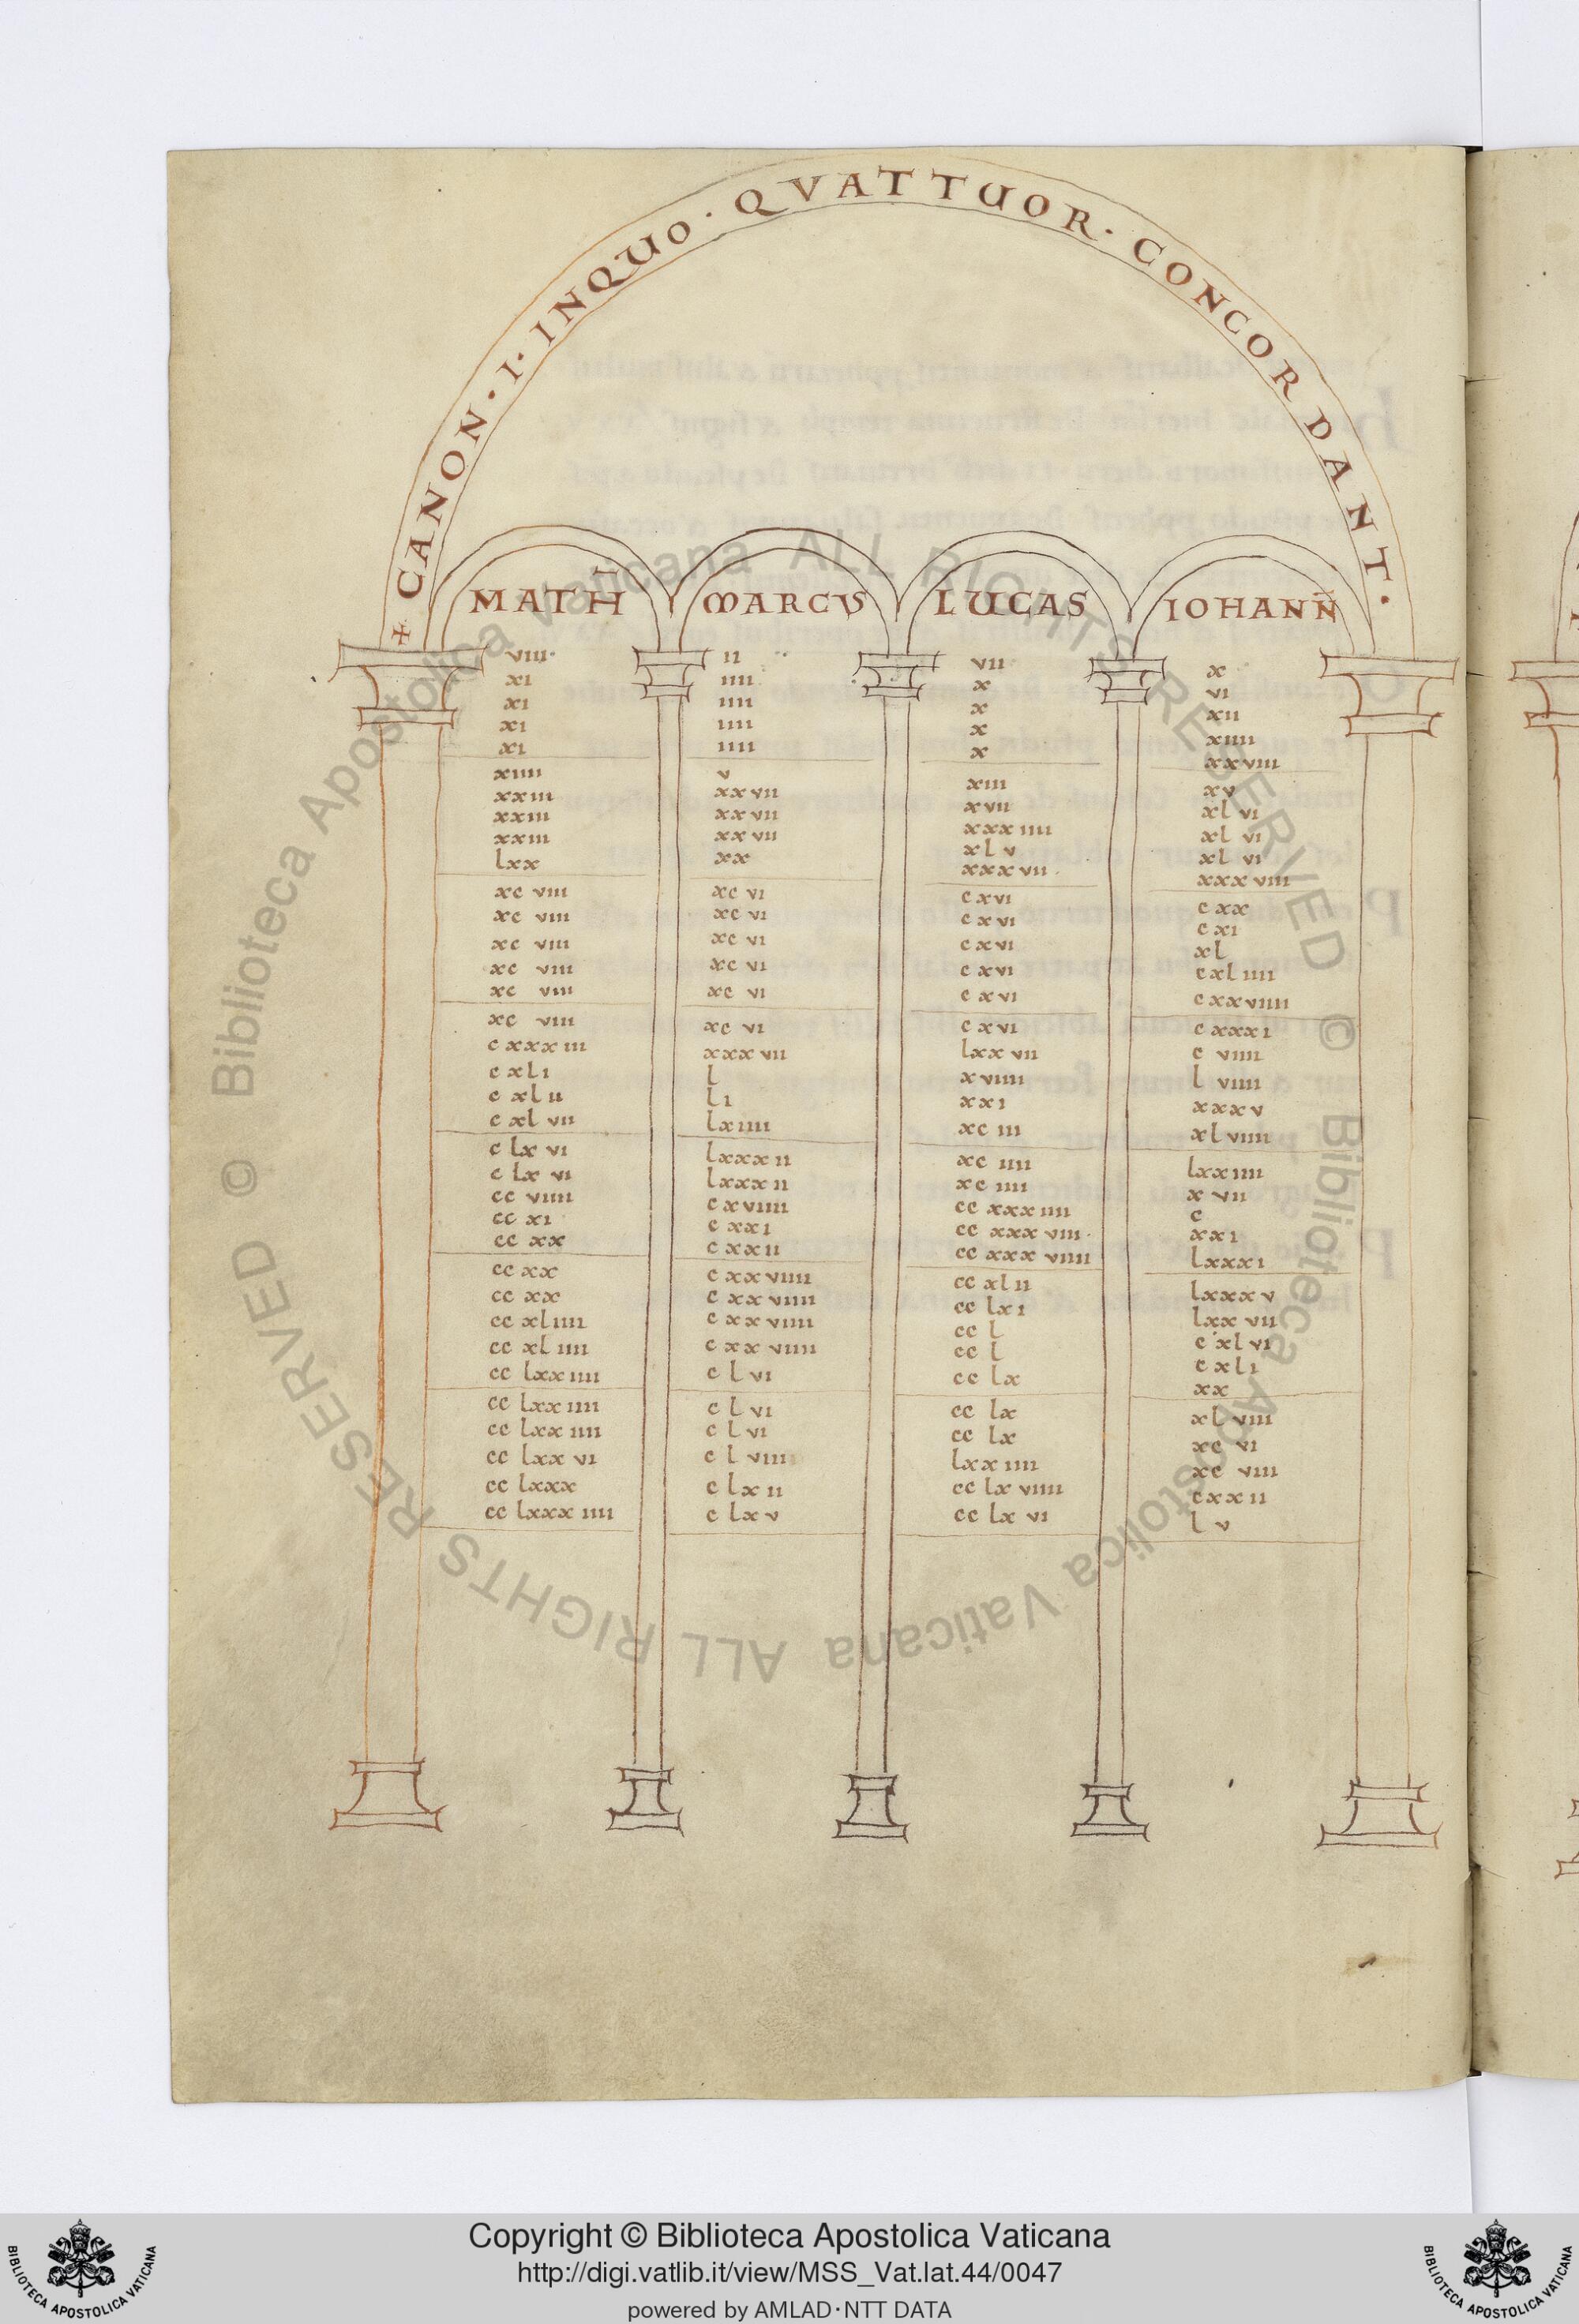 + CANON · I · INQUO · QVATTUOR · CONCORDANT ·
MATH MARCUS LUCAS IOHANN
viiii ii vii x
xi iiii x vi
xi iiii x xii
xi iiii x xiiii
xi iiii x xxviii
xiiii v xiii xv
xxiii xxvii xvii xlvi
xxiii xxvii xxxiiii xlvi
xxiii xxvii xlv xlvi
lxx xx xxxvii xxxviii
xcviii xcvi cxvi cxx
xcviii xcvi cxvi cxi
xcviii xcvi cxvi xl
xcviii xcvi cxvi cxliiii
xcviii xcvi cxvi cxxviiii
xcviii xcvi cxvi cxxxi
cxxxiii xxxvii lxxvii cviiii
cxli l xviiii lviiii
cxlii li xxi xxxv
cxlvii lxiiii xciii xlviiii
clxvi lxxxii xciiii lxxiiii
clxvi lxxxii xciiii xvii
ccviiii cxviiii ccxxxiiii c
ccxi cxxi ccxxxviii xxi
ccxx cxxii ccxxxviiii lxxxi
ccxx cxxviiii ccxlii lxxxv
ccxx cxxviiii cclxi lxxvii
ccxliiii cxxviiii ccl cxlvi
ccxliiii cxxviiii ccl cxli
cclxxiiii clvi cclx xx
cclxxiiii clvi cclx xlviii
cclxxiiii clvi cclx xcvi
cclxxvi clviii lxxiiii xcviii
cclxxx clxii cclxviiii cxxii
cclxxxiiii clxv cclxvi lv
Biblioteca Apostolica Vaticana ALL RIGHTS RESERVED © Biblioteca Apostolica Vaticana ALL RIGHTS RESERVED ©
Copyright © Biblioteca Apostolica Vaticana
http://digi.vatlib.it/view/MSS_Vat.lat.44/0047
powered by AMLAD·NTT DATA
BIBLIOTECA APOSTOLICA VATICANA
BIBLIOTECA APOSTOLICA VATICANA